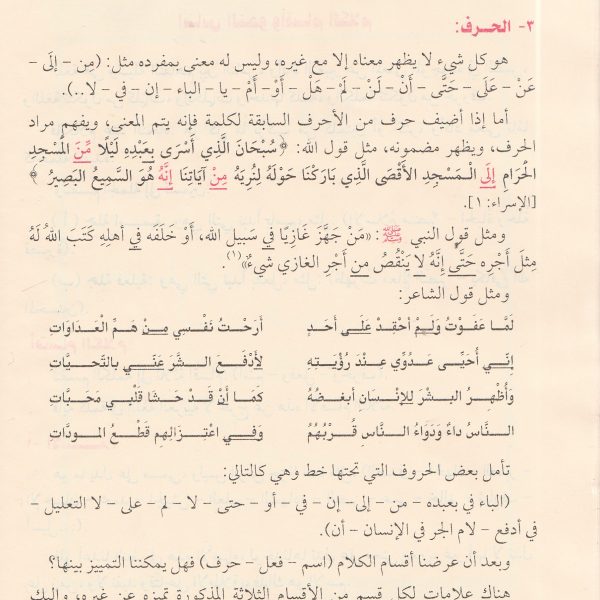 ٣- الحرف:
هو كل شيء لا يظهر معناه إلا مع غيره، وليس له معنى بمفرده مثل: (مِن – إلَى –
عَنْ – عَلَى – حَتَّى – أَنْ – لَنْ – لَمْ – هَلْ – أَوْ – أَمْ – يا – الباء – إن – في – لا..).
أما إذا أضيف حرف من الأحرف السابقة لكلمة فإنه يتم المعنى، ويفهم مراد
الحرف، ويظهر مضمونه، مثل قول الله: ﴿سُبْحَانَ الَّذِي أَسْرَى بِعَبْدِهِ لَيْلًا مِّنَ الْمَسْجِدِ
الْحَرَامِ إِلَى الْـمَسْجِدِ الْأَقْصَى الَّذِي بَارَكْنَا حَوْلَهُ لِنُرِيَهُ مِنْ آيَاتِنَا إِنَّهُ هُوَ السَّمِيعُ البَصِيرُ﴾
[الإسراء: ١].
ومثل قول النبي ﷺ: «مَنْ جَهَّزَ غَازِيًا في سَبيل الله، أَوْ خَلَفَه في أهلِهِ كَتَبَ اللهُ لَهُ
مِثْلَ أَجْرِه حَتَّى إِنَّهُ لا يَنْقُصُ مِن أَجْرِ الغازي شيءٌ»(١).
ومثل قول الشاعر:
لَمَّا عَفَوْتُ وَلَمْ أَحْقِدْ عَلَى أَحَدٍ أَرَحْتُ نَفْسِي مِنْ هَمِّ الْعَدَاوَاتِ
إِنِّي أُحَيِّي عَدُوِّي عِنْدَ رُؤْيَتِهِ لأَدْفَعَ الشَّرَ عَنِّي بالتَّحِيَّاتِ
وَأُظْهِرُ البِشْرَ لِلإِنْسَانِ أبغضُهُ كَمَا أَنْ قَدْ حَشَا قَلْبي مَحَبَّاتِ
النَّاسُ داءٌ وَدَوَاءُ النَّاسِ قُرْبُهُمُ وَفي اعْتِزَالِهِم قَطْعُ المودَّاتِ
تأمل بعض الحروف التي تحتها خط وهي كالتالي:
(الباء في بعبده – من – إلى – إن – في – أو – حتى – لا – لم – على – لا التعليل –
في أدفع – لام الجر في الإنسان – أن).
وبعد أن عرضنا أقسام الكلام (اسم – فعل – حرف) فهل يمكننا التمييز بينها؟
هناك علامات لكل قسم من الأقسام الثلاثة المذكورة تميزه عن غيره، وإليك